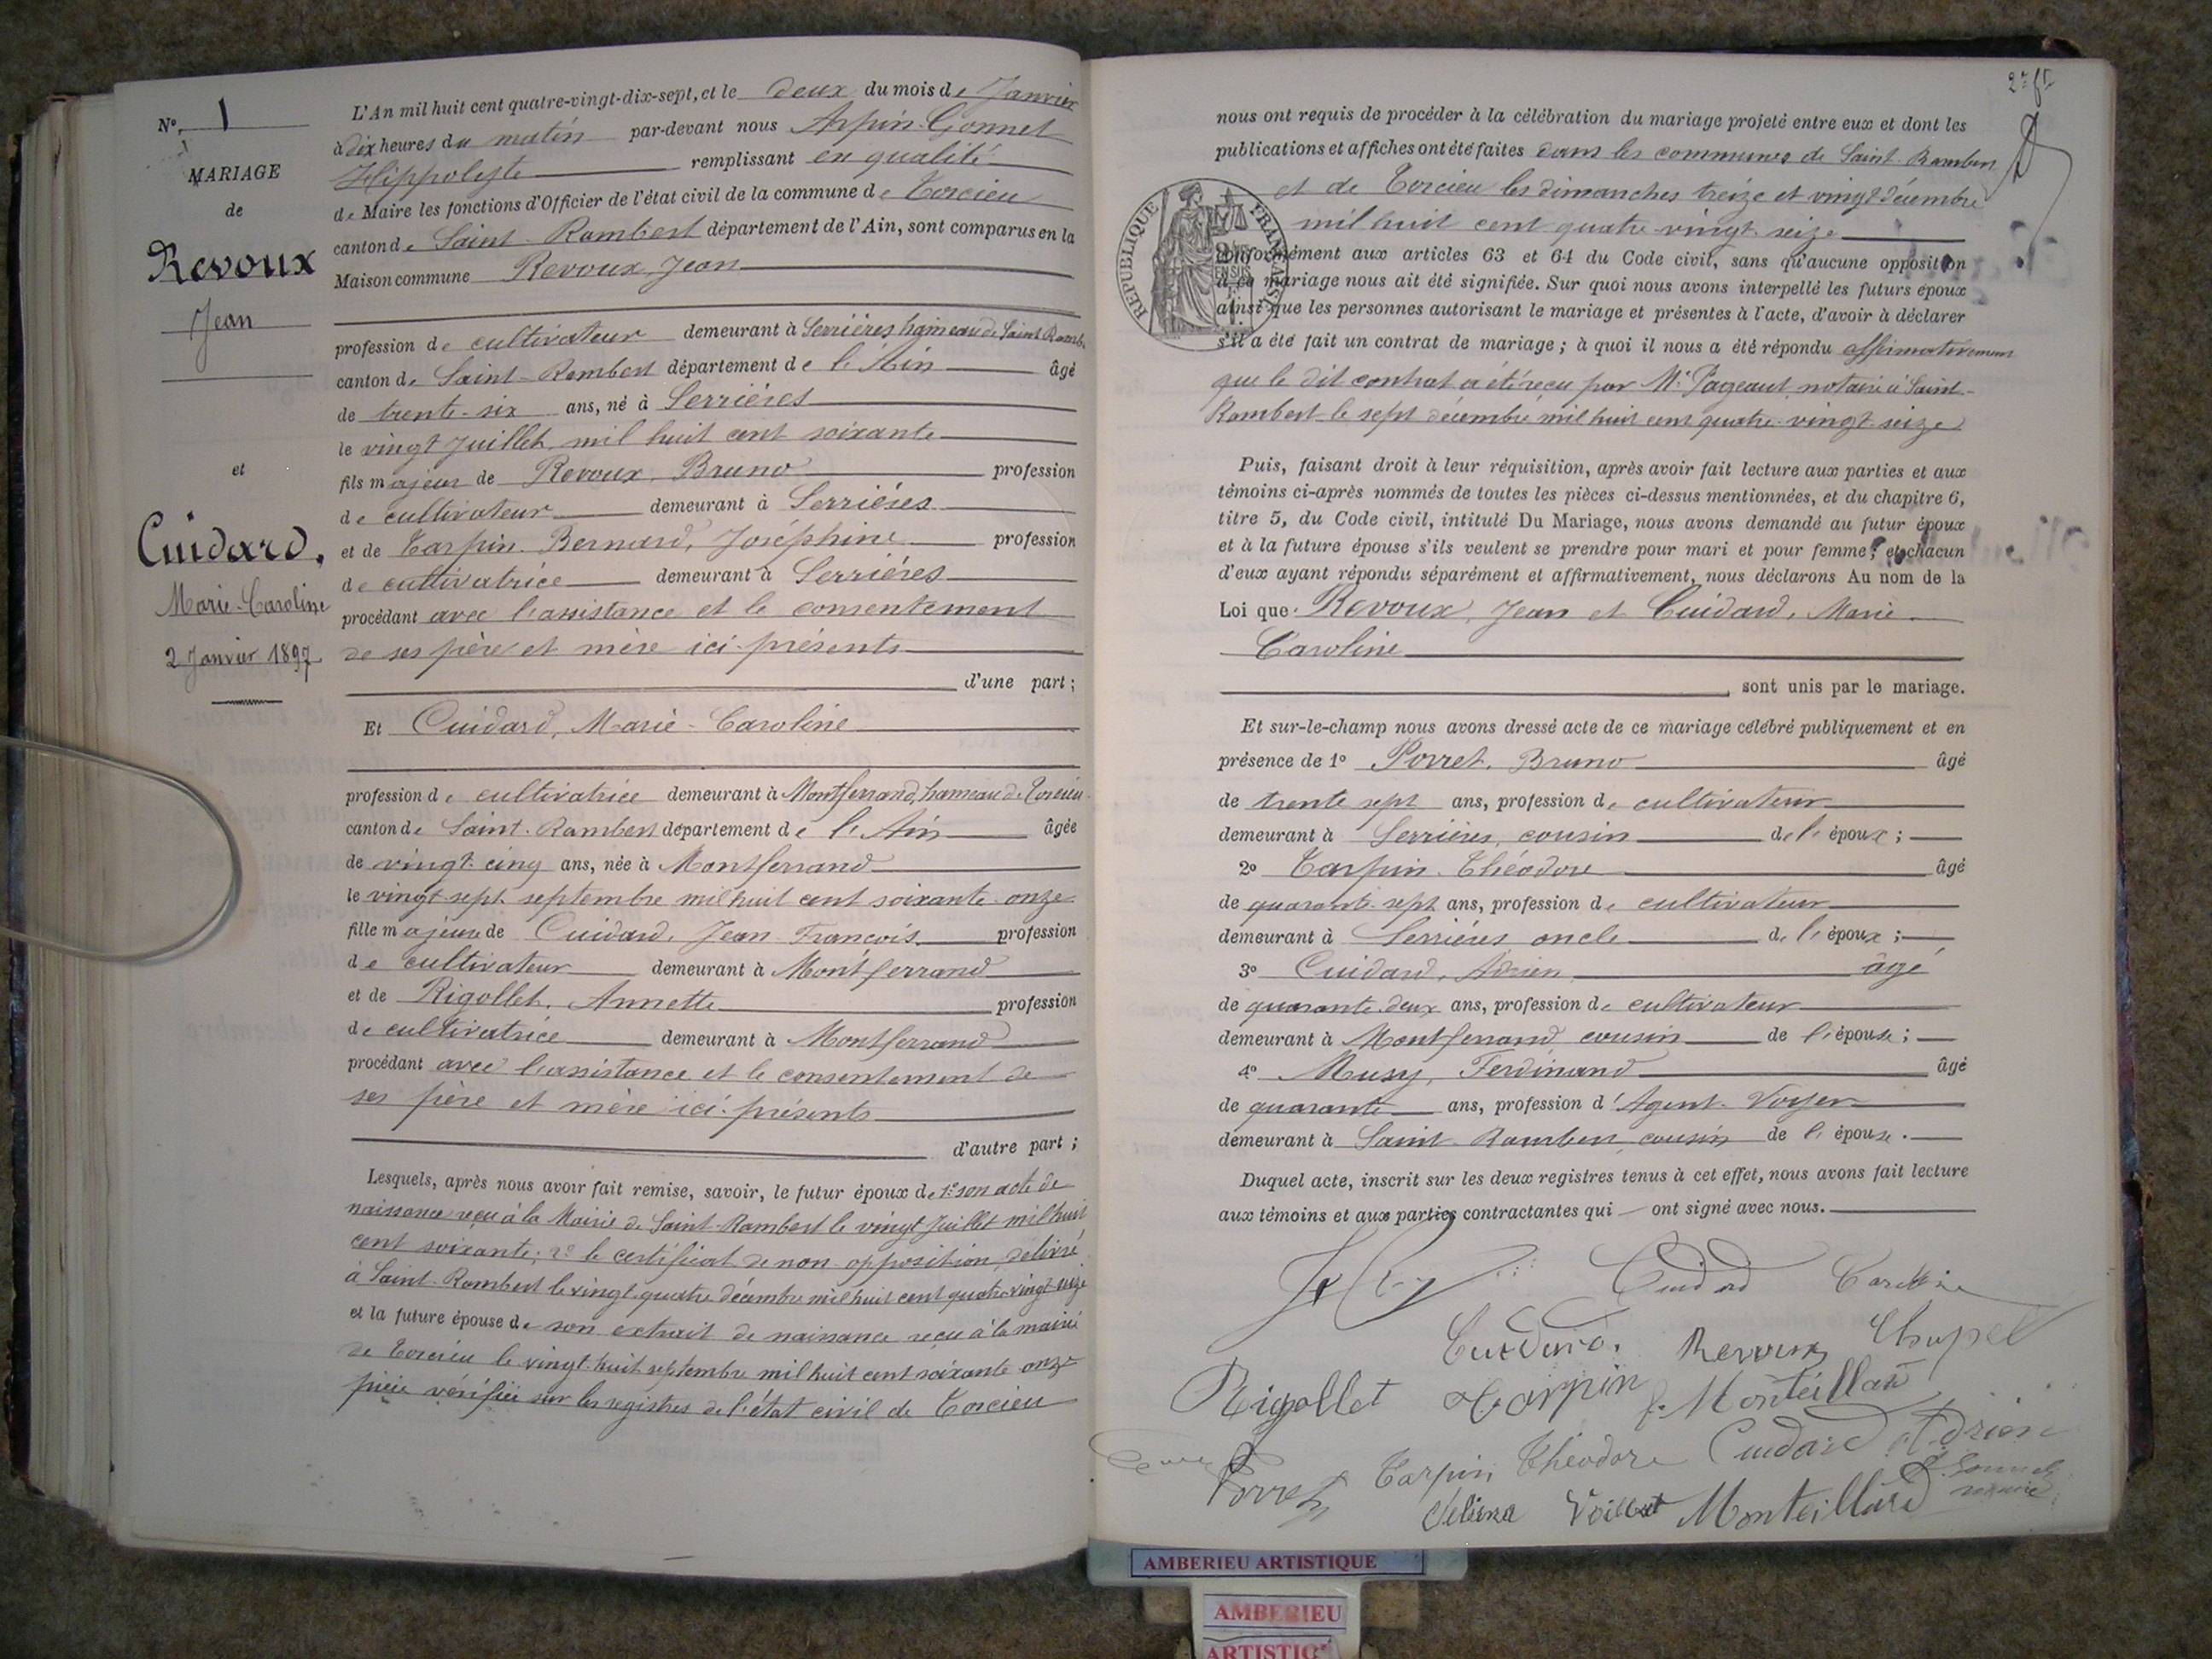 N° 1
MARIAGE
de
Revoux
Jean
et
Cuidard,
Marie-Caroline
2 Janvier 1897
L'An mil huit cent quatre-vingt-dix-sept, et le deux du mois de Janvier
à dix heures du matin par-devant nous Arpin-Gonnet
Hippolyte remplissant en qualité
de Maire les fonctions d'Officier de l'état civil de la commune de Torcieu
canton de Saint-Rambert département de l'Ain, sont comparus en la
Maison commune Revoux, Jean
profession de cultivateur demeurant à Serrières, hameau de Saint Ramb.
canton de Saint-Rambert département de l'Ain âgé
de trente-six ans, né à Serrières
le vingt Juillet mil huit cent soixante
fils majeur de Revoux, Bruno profession
de cultivateur demeurant à Serrières
et de Tarpin-Bernard, Joséphine profession
de cultivatrice demeurant à Serrières
procédant avec l'assistance et le consentement
de ses père et mère ici présents
d'une part ;
Et Cuidard, Marie-Caroline
profession de cultivatrice demeurant à Montferrand, hameau de Torcieu
canton de Saint-Rambert département de l'Ain âgée
de vingt-cinq ans, née à Montferrand
le vingt-sept septembre mil huit cent soixante-onze
fille majeure de Cuidard, Jean-François profession
de cultivateur demeurant à Montferrand
et de Rigollet, Annette profession
de cultivatrice demeurant à Montferrand
procédant avec l'assistance et le consentement de
ses père et mère ici présents
d'autre part ;
Lesquels, après nous avoir fait remise, savoir, le futur époux de 1° son acte de
naissance reçu à la Mairie de Saint-Rambert le vingt Juillet mil huit
cent soixante; 2° le certificat de non opposition, délivré
à Saint-Rambert le vingt-quatre décembre mil huit cent quatre-vingt-seize
et la future épouse de son extrait de naissance reçu à la mairie
de Torcieu le vingt-huit septembre mil huit cent soixante-onze
pièce vérifiée sur les registres de l'état civil de Torcieu
nous ont requis de procéder à la célébration du mariage projeté entre eux et dont les
publications et affiches ont été faites dans les communes de Saint-Rambert
et de Torcieu les dimanches treize et vingt décembre
mil huit cent quatre-vingt-seize
RÉPUBLIQUE FRANÇAISE
conformément aux articles 63 et 64 du Code civil, sans qu'aucune opposition
à ce mariage nous ait été signifiée. Sur quoi nous avons interpellé les futurs époux
ainsi que les personnes autorisant le mariage et présentes à l'acte, d'avoir à déclarer
s'il a été fait un contrat de mariage ; à quoi il nous a été répondu affirmativement
que le dit contrat a été reçu par Me Pageaut, notaire à Saint-
Rambert le sept décembre mil huit cent quatre-vingt-seize
Puis, faisant droit à leur réquisition, après avoir fait lecture aux parties et aux
témoins ci-après nommés de toutes les pièces ci-dessus mentionnées, et du chapitre 6,
titre 5, du Code civil, intitulé Du Mariage, nous avons demandé au futur époux
et à la future épouse s'ils veulent se prendre pour mari et pour femme ; et chacun
d'eux ayant répondu séparément et affirmativement, nous déclarons Au nom de la
Loi que Revoux, Jean et Cuidard, Marie
Caroline
sont unis par le mariage.
Et sur-le-champ nous avons dressé acte de ce mariage célébré publiquement et en
présence de 1° Porret, Bruno âgé
de trente sept ans, profession de cultivateur
demeurant à Serrières, cousin de l'époux ;
2° Tarpin-Théodore âgé
de quarante-sept ans, profession de cultivateur
demeurant à Serrières oncle de l'époux ;
3° Cuidard, Adrien âgé
de quarante-deux ans, profession de cultivateur
demeurant à Montferrand cousin de l'épouse ;
4° Musy, Ferdinand âgé
de quarante ans, profession d'Agent-Voyer
demeurant à Saint-Rambert, cousin de l'épouse.
Duquel acte, inscrit sur les deux registres tenus à cet effet, nous avons fait lecture
aux témoins et aux parties contractantes qui ont signé avec nous.
Cuidard Caroline
Cuidard. Revoux Chapel
Rigollet Tarpin Monteillard
Porret Tarpin Théodore Cuidard Adrien
Monteillard
AMBERIEU ARTISTIQUE
AMBERIEU
ARTISTIQ